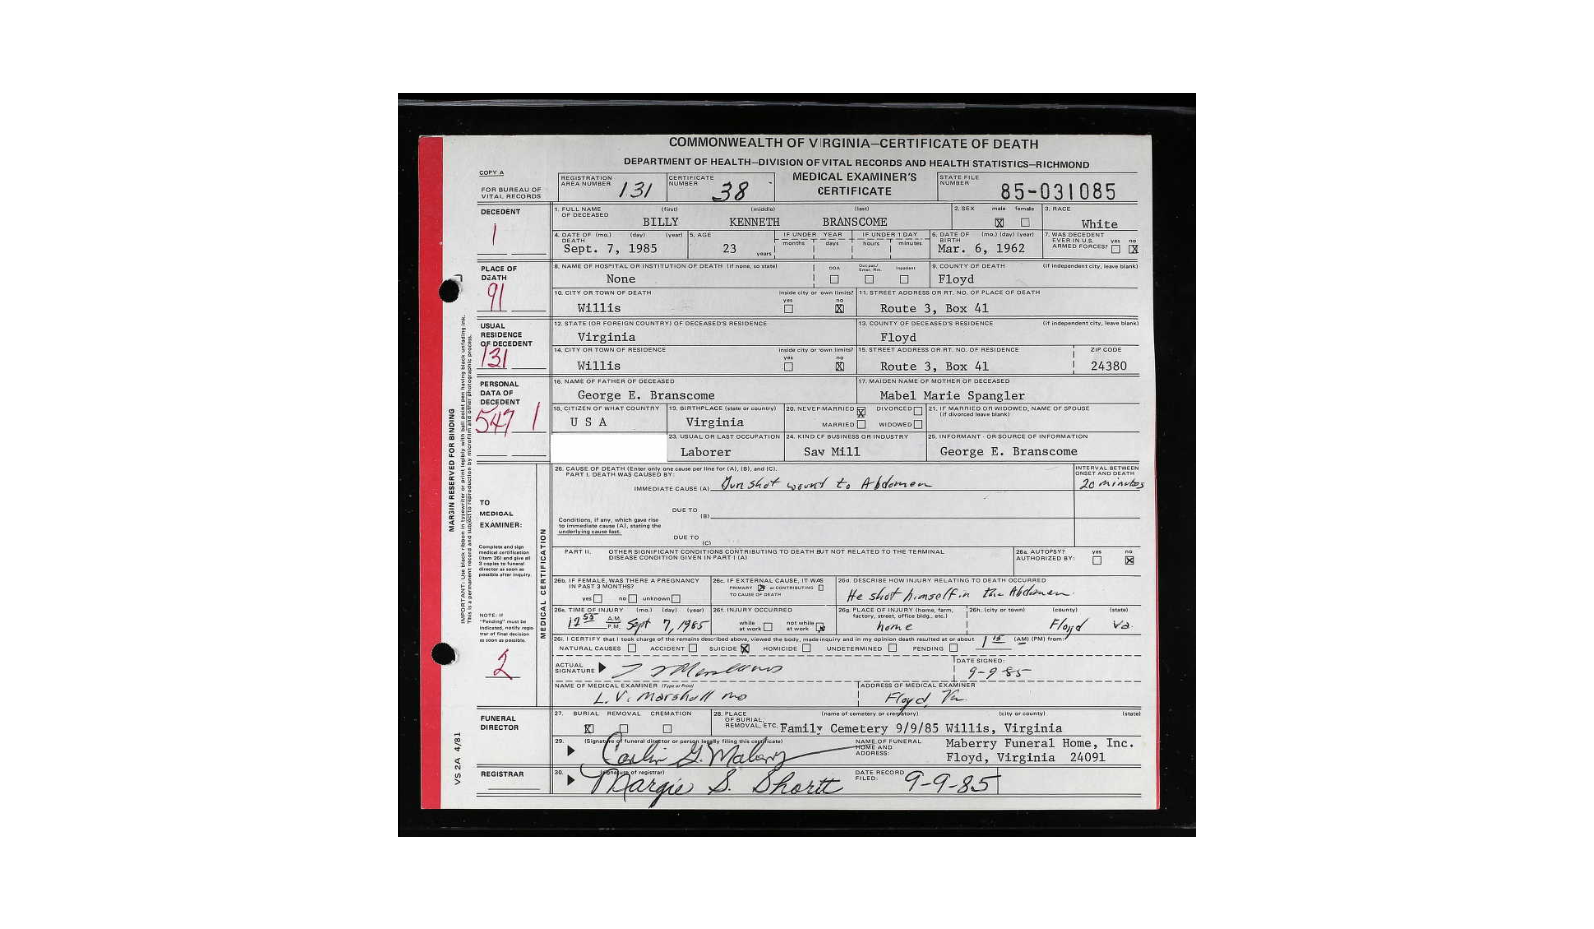 COMMONWEALTH OF VIRGINIA—CERTIFICATE OF DEATH
DEPARTMENT OF HEALTH—DIVISION OF VITAL RECORDS AND HEALTH STATISTICS—RICHMOND
COPY A
FOR BUREAU OF VITAL RECORDS
REGISTRATION AREA NUMBER 131 CERTIFICATE NUMBER 38 MEDICAL EXAMINER'S CERTIFICATE STATE FILE NUMBER 85-031085
DECEDENT
1
1. FULL NAME OF DECEASED (first) (middle) (last) 2. SEX male female 3. RACE
BILLY KENNETH BRANSCOME X White
4. DATE OF DEATH (mo.) (day) (year) 5. AGE IF UNDER 1 YEAR IF UNDER 1 DAY 6. DATE OF BIRTH (mo.) (day) (year) 7. WAS DECEDENT EVER IN U.S. ARMED FORCES? yes no
months days hours minutes
Sept. 7, 1985 23 years Mar. 6, 1962 X
PLACE OF DEATH
91
8. NAME OF HOSPITAL OR INSTITUTION OF DEATH (if none, so state) DOA Inpatient 9. COUNTY OF DEATH (if independent city, leave blank)
None Floyd
10. CITY OR TOWN OF DEATH inside city or town limits? yes no 11. STREET ADDRESS OR RT. NO. OF PLACE OF DEATH
Willis X Route 3, Box 41
USUAL RESIDENCE OF DECEDENT
131
12. STATE (OR FOREIGN COUNTRY) OF DECEASED'S RESIDENCE 13. COUNTY OF DECEASED'S RESIDENCE (if independent city, leave blank)
Virginia Floyd
14. CITY OR TOWN OF RESIDENCE inside city or town limits? yes no 15. STREET ADDRESS OR RT. NO. OF RESIDENCE ZIP CODE
Willis X Route 3, Box 41 24380
PERSONAL DATA OF DECEDENT
547 1
16. NAME OF FATHER OF DECEASED 17. MAIDEN NAME OF MOTHER OF DECEASED
George E. Branscome Mabel Marie Spangler
18. CITIZEN OF WHAT COUNTRY 19. BIRTHPLACE (state or country) 20. NEVER MARRIED X DIVORCED 21. IF MARRIED OR WIDOWED, NAME OF SPOUSE (if divorced leave blank)
U S A Virginia MARRIED WIDOWED
23. USUAL OR LAST OCCUPATION 24. KIND OF BUSINESS OR INDUSTRY 25. INFORMANT - OR SOURCE OF INFORMATION
Laborer Saw Mill George E. Branscome
MARGIN RESERVED FOR BINDING
IMPORTANT: Use black ribbon in typewriter or print legibly with ball point pen having black unfading ink.
This is a permanent record and subject to reproduction by microfilm and other photographic process.
TO MEDICAL EXAMINER:
Complete and sign medical certification (item 26) and give all 3 copies to funeral director as soon as possible after inquiry.
NOTE: If "Pending" must be indicated, notify registrar of final decision as soon as possible.
2
MEDICAL CERTIFICATION
26. CAUSE OF DEATH (Enter only one cause per line for (A), (B), and (C). INTERVAL BETWEEN ONSET AND DEATH
PART I. DEATH WAS CAUSED BY:
IMMEDIATE CAUSE (A) Gun shot wound to Abdomen 20 minutes
DUE TO (B)
Conditions, if any, which gave rise to immediate cause (A), stating the underlying cause last.
DUE TO (C)
PART II. OTHER SIGNIFICANT CONDITIONS CONTRIBUTING TO DEATH BUT NOT RELATED TO THE TERMINAL DISEASE CONDITION GIVEN IN PART I (A) 26a. AUTOPSY? AUTHORIZED BY: yes no X
26b. IF FEMALE, WAS THERE A PREGNANCY IN PAST 3 MONTHS? yes no unknown
26c. IF EXTERNAL CAUSE, IT WAS PRIMARY X or CONTRIBUTING TO CAUSE OF DEATH
26d. DESCRIBE HOW INJURY RELATING TO DEATH OCCURRED
He shot himself in the Abdomen
26e. TIME OF INJURY (mo.) (day) (year) 26f. INJURY OCCURRED 26g. PLACE OF INJURY (home, farm, factory, street, office bldg., etc.) 26h. (city or town) (county) (state)
12 55 A.M. P.M. Sept 7, 1985 while at work not while at work X home Floyd Va
26i. I CERTIFY that I took charge of the remains described above, viewed the body, made inquiry and in my opinion death resulted at or about 1 15 (AM) (PM) from:
NATURAL CAUSES ACCIDENT SUICIDE X HOMICIDE UNDETERMINED PENDING
ACTUAL SIGNATURE DATE SIGNED:
9-9-85
NAME OF MEDICAL EXAMINER (Type or Print) ADDRESS OF MEDICAL EXAMINER
L. V. Marshall MD Floyd, Va
FUNERAL DIRECTOR
27. BURIAL REMOVAL CREMATION 28. PLACE OF BURIAL, REMOVAL, ETC. (name of cemetery or crematory) (city or county) (state)
X Family Cemetery 9/9/85 Willis, Virginia
29. (Signature of funeral director or person legally filing this certificate) NAME OF FUNERAL HOME AND ADDRESS: Maberry Funeral Home, Inc.
Maberry Floyd, Virginia 24091
REGISTRAR
30. (signature of registrar) DATE RECORD FILED:
Margie S. Shortt 9-9-85
VS 2A 4/81